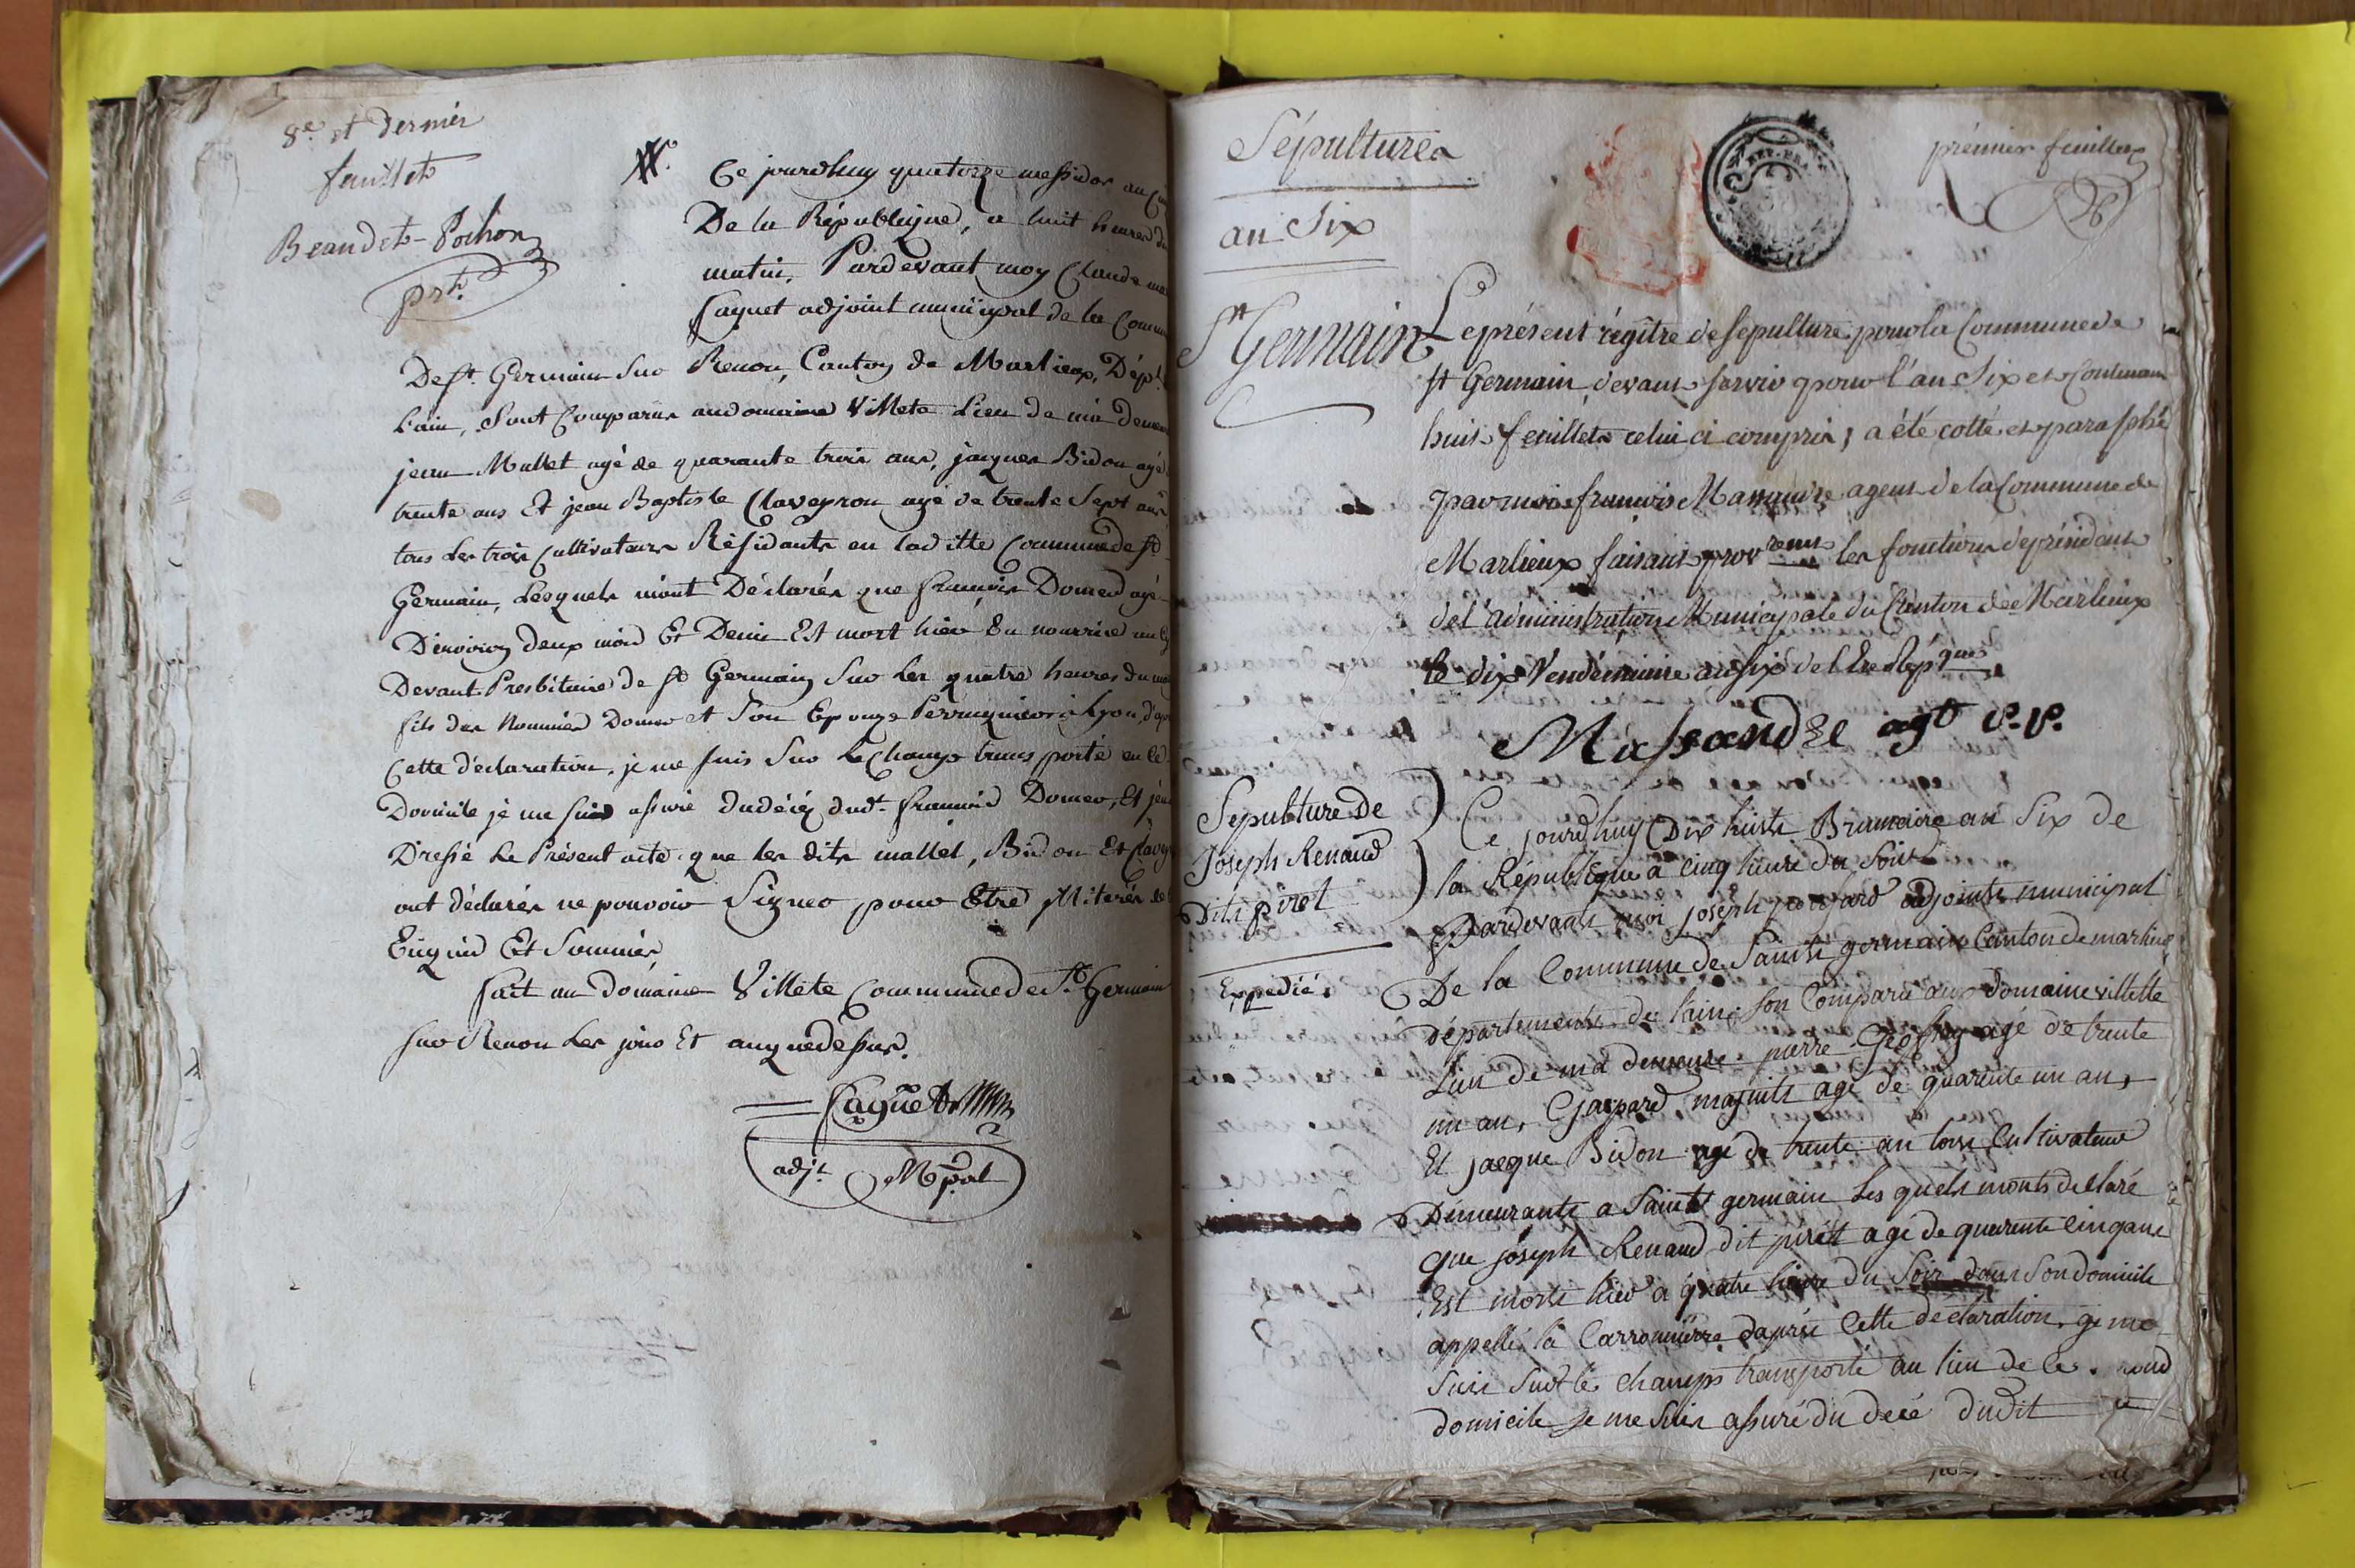 8e. et dernier
feuillet
Beaudet-Pochon
prt.
Ce jourdhuy quatorze messidor an
De la République, a huit heures du
matin, Pardevant moy Claude
Saquet adjoint municipal de la
De st. Germain Sur Renon, Canton de Marlieux, Dépt.
Lain, Sont Comparus au domaine Villete Lieu de ma
jean Mallet agé de quarante trois ans, jacques Bidon agé
trente ans Et jean Baptiste Claveyron agé de trente Sept ans
tous Les trois Cultivateurs Résidants en la ditte Commune de st
Germain, Lesquels mont Déclarés que francois agé
Denviron deux mois Et Demi Est mort hier En nourrice
Devant Presbitaire de st Germain Sur Les quatre heures du
fils des Nommés et Son Epouze a Lyon,
Cette déclaration, je me suis Sur Le Champs transporté
Domicile je me suis assuré dudécé dudt. francois Et
Dressé Le Présent acte que les dits mallet, Bidon Et
ont déclarés ne pouvoir Signer pour Etre
Enquis Et Sommés
fait au domaine Villete Commune de St. Germain
sur Renon Les jour Et an que dessus.
Saquet
adjt. Mpal
Sépultures
an Six
prémier feuillet
St Germain
Le présent régître de sepulture pour la Commune de
st Germain, devant servir pour l'an Six et Contenant
huit feuillets celui ci compris, a été cotté et paraphé
par moi françois agent de la Commune de
Marlieux faisant provremt les fonctions de président
de l'administration Municipale du Canton de Marlieux
le dix Vendémiaire an six de l'Ere Repque
agt p.p.
Sepulture de
Joseph Renaud
Dit piret
Expedié
Ce jourdhuy Dix huite Brumaire an Six de
la République a cinq heure du Soir
Pardevant moi joseph adjoint municipal
De la Commune de Saint germain Canton de marlieux
département de lain son Comparu au domaine villette
Lieu de ma demeure pierre agé de trente
un an, Gaspard agé de quarente un an,
Et jacque Bidon agé de trente an tous Cultivateur
Demeurants a Saint germain Les quels monts déclaré
que joseph Renaud dit pirét agé de quarente cinq ans
Est morts hier a quatre heure du Soir dans Son domicile
appellé la Carronnierre daprés Cette déclaration, je me
Suis Sur le champs transporté au lieu de ce
domicile je me Suis assuré du décé dudit